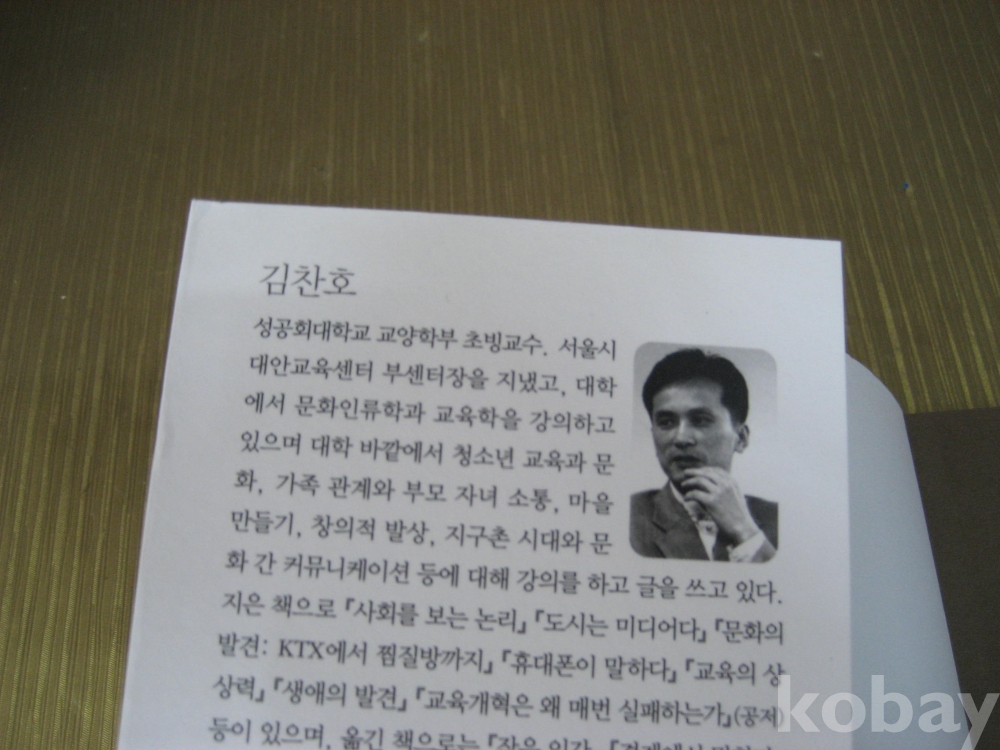 김찬호
성공회대학교 교양학부 초빙교수. 서울시
대안교육센터 부센터장을 지냈고, 대학
에서 문화인류학과 교육학을 강의하고
있으며 대학 바깥에서 청소년 교육과 문
화, 가족 관계와 부모 자녀 소통, 마을
만들기, 창의적 발상, 지구촌 시대와 문
화 간 커뮤니케이션 등에 대해 강의를 하고 글을 쓰고 있다.
지은 책으로 『사회를 보는 논리』 『도시는 미디어다』 『문화의
발견: KTX에서 찜질방까지』 『휴대폰이 말하다』 『교육의 상
상력』 『생애의 발견』 『교육개혁은 왜 매번 실패하는가』(공저)
등이 있으며, 옮긴 책으로는 『작은 인간』
kobay